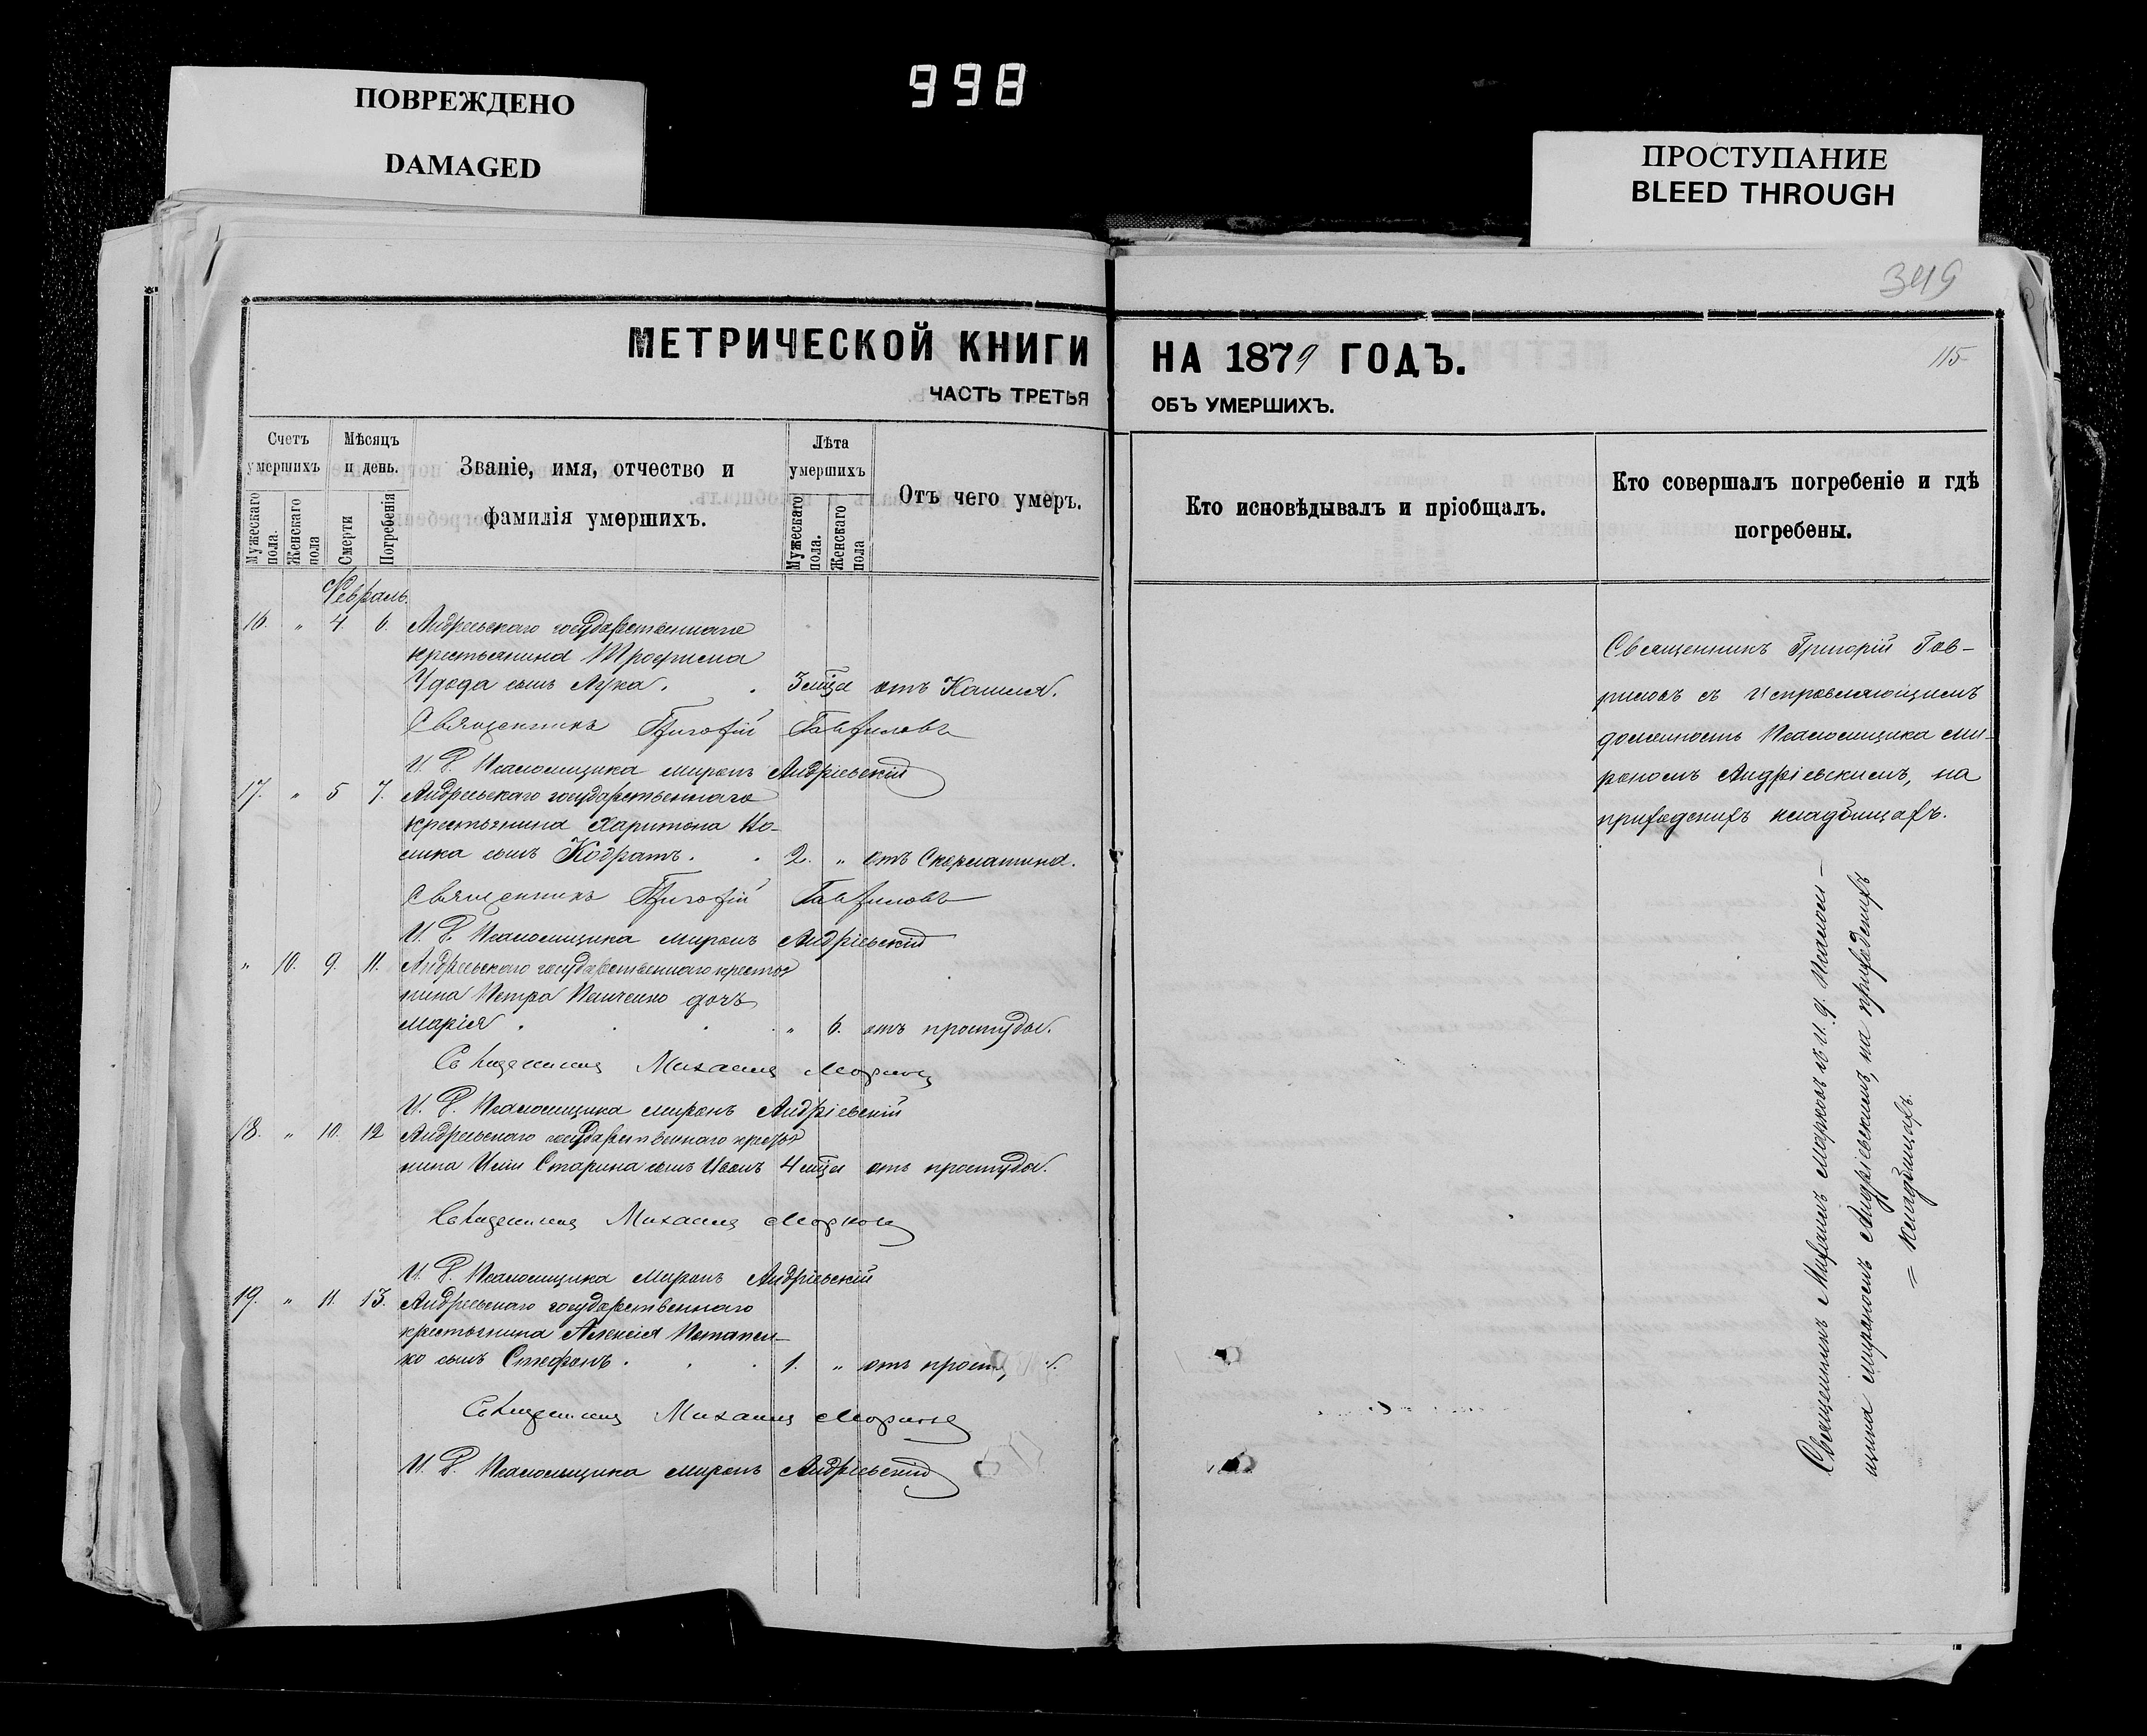 998
ПОВРЕЖДЕНО
DAMAGED
ПРОСТУПАНИЕ
BLEED THROUGH
349
МЕТРИЧЕСКОЙ КНИГИ
НА 1879 ГОДЪ.
115
ЧАСТЬ ТРЕТЬЯ
ОБЪ УМЕРШИХЪ.
Счетъ умершихъ
Мужескаго пола.
Женскаго пола
Мѣсяцъ и день.
Смерти
Погребенія
Званіе, имя, отчество и фамилія умершихъ.
Лѣта умершихъ
Мужескаго пола.
Женскаго пола
Отъ чего умеръ.
Кто исповѣдывалъ и пріобщалъ.
Кто совершалъ погребеніе и гдѣ погребены.
Февраль.
16. " 4. 6. Андреевскаго государственнаго
крестьянина Трофима
Удода сынъ Лука. 3 мца отъ Кашля.
Священникъ Григорій Гавриловъ
И. Д. Псаломщика Миронъ Андріевскій
17. " 5 7. Андреевскаго государственнаго
крестьянина Харитона Но-
сика сынъ Кодратъ. 2. " отъ Скарлатина.
Священникъ Григорій Гавриловъ
И. Д. Псаломщика Миронъ Андріевскій
" 10. 9. 11. Андреевскаго государственнаго крестья
нина Петра Панченко дочь
Марія " 6. отъ простуды.
Священникъ Михаилъ Марковъ
И. Д. Псаломщика Миронъ Андріевскій
18. " 10. 12 Андреевскаго государственнаго крестья
нина Иліи Старина сынъ Иванъ 4 мца отъ простуды.
Священникъ Михаилъ Марковъ
И. Д. Псаломщика Миронъ Андріевскій
19. " 11. 13. Андреевскаго государственнаго
крестьянина Алексія Потапен-
ко сынъ Стефанъ. 1. " отъ
Священникъ Михаилъ Марковъ
И. Д. Псаломщика Миронъ Андріевскій
Священникъ Григорій Гав-
риловъ съ Исправляющимъ
должность Псаломщика Ми-
рономъ Андріевскимъ, на
приходскихъ кладбищахъ.
Священникъ Михаилъ Марковъ съ И. д. Псалом-
щика Мирономъ Андріевскимъ, на приходскихъ
= кладбищахъ.